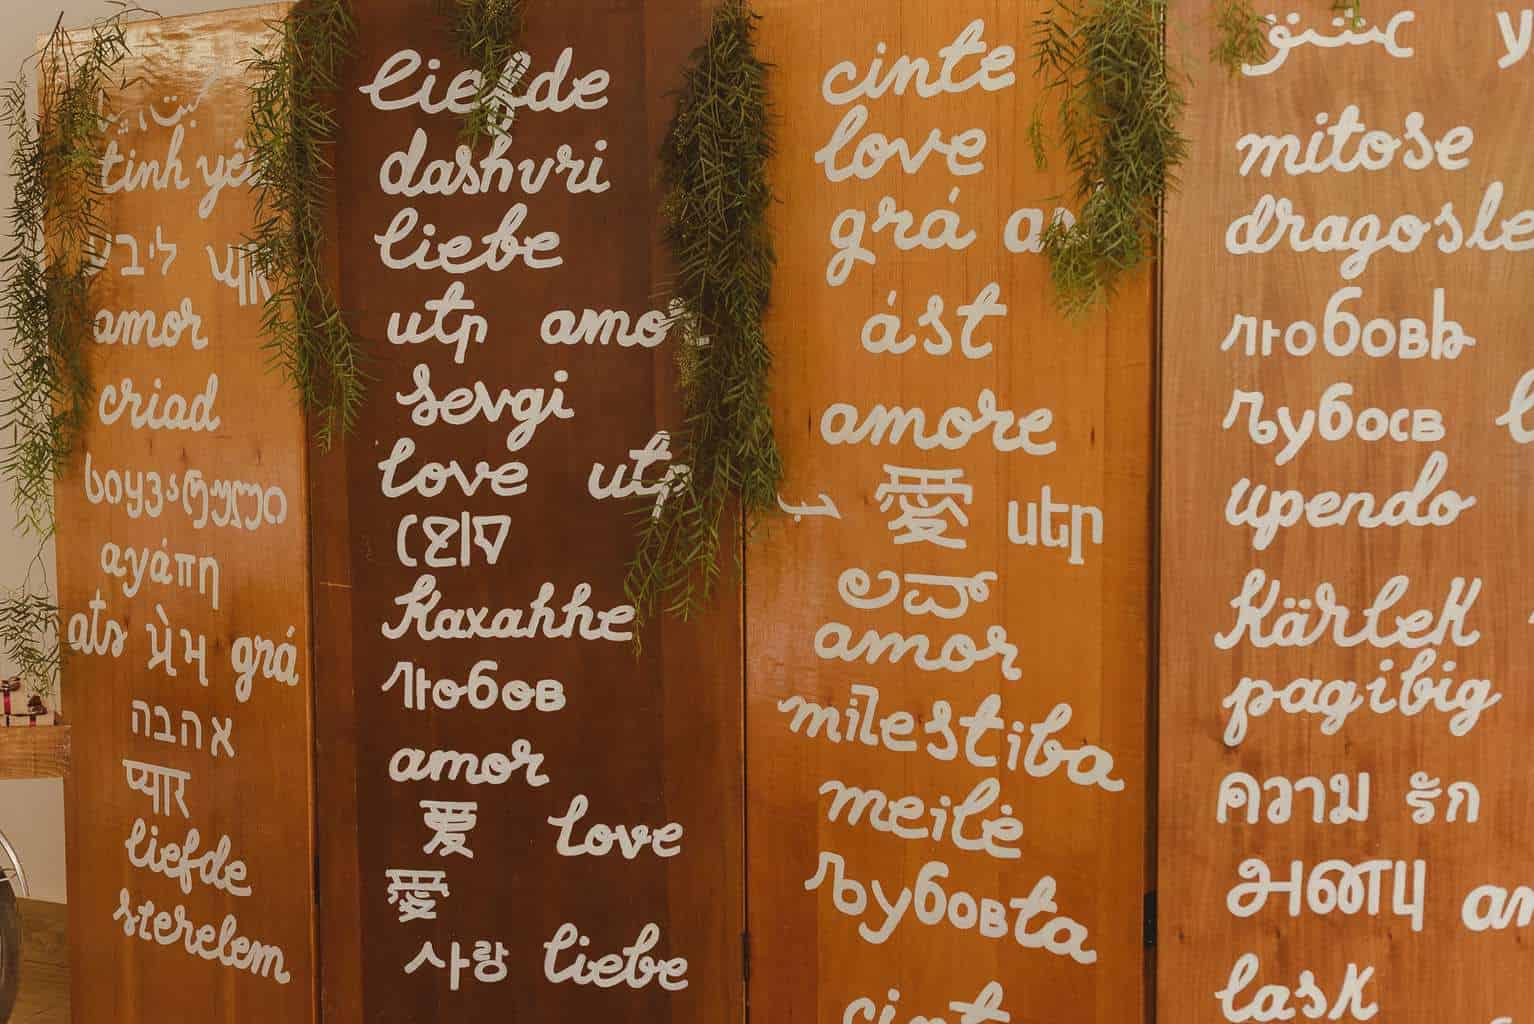 tinh yê
ליבע
amor
criad
სიყვარული
αγάπη
ats પ્રેમ grá
אהבה
प्यार
liefde
szerelem
liefde
dashuri
liebe
սեր amo
sevgi
love սեր
Каханне
любов
amor
爱 love
愛
사랑 liebe
cinte
love
grá
ást
amore
愛 սեր
ಲವ್
amor
mīlestība
meilė
љубовта
cint
mitose
dragosle
любовь
љубов
upendo
kärlek
pagibig
ความ รัก
அன்பு am
lask